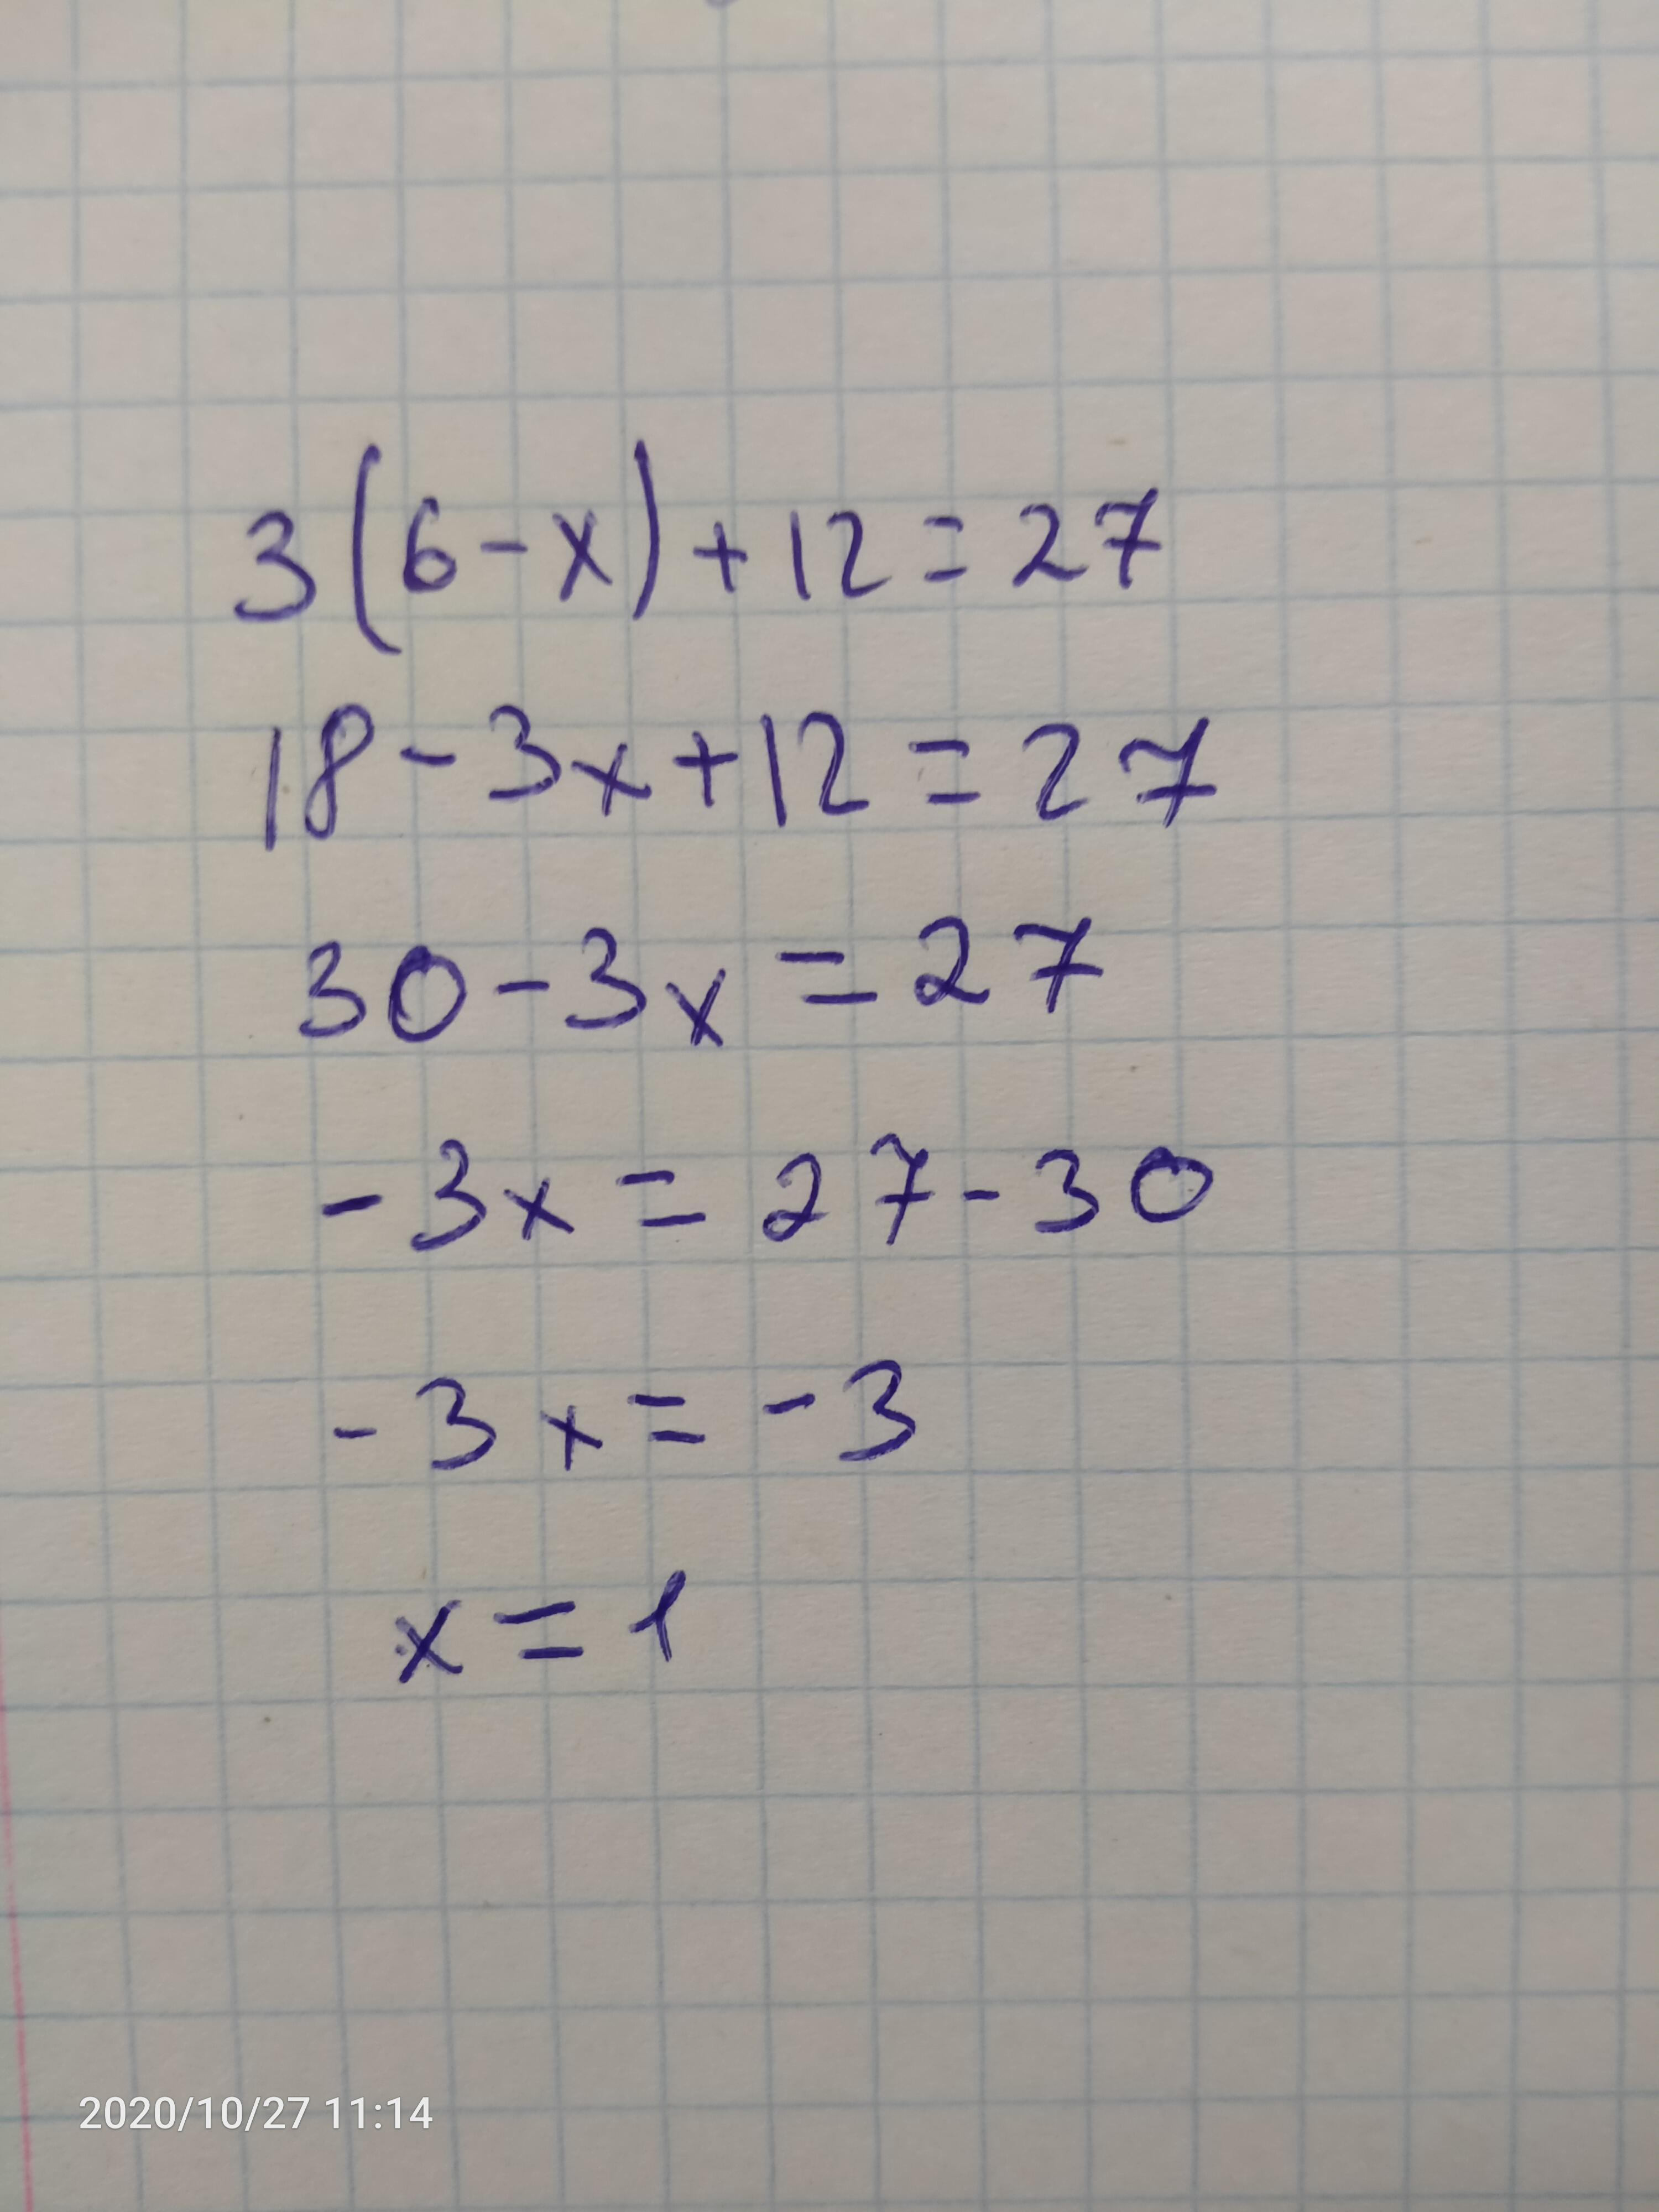 3(6-x)+12=27
18-3x+12=27
30-3x=27
-3x=27-30
-3x=-3
x=1
2020/10/27 11:14